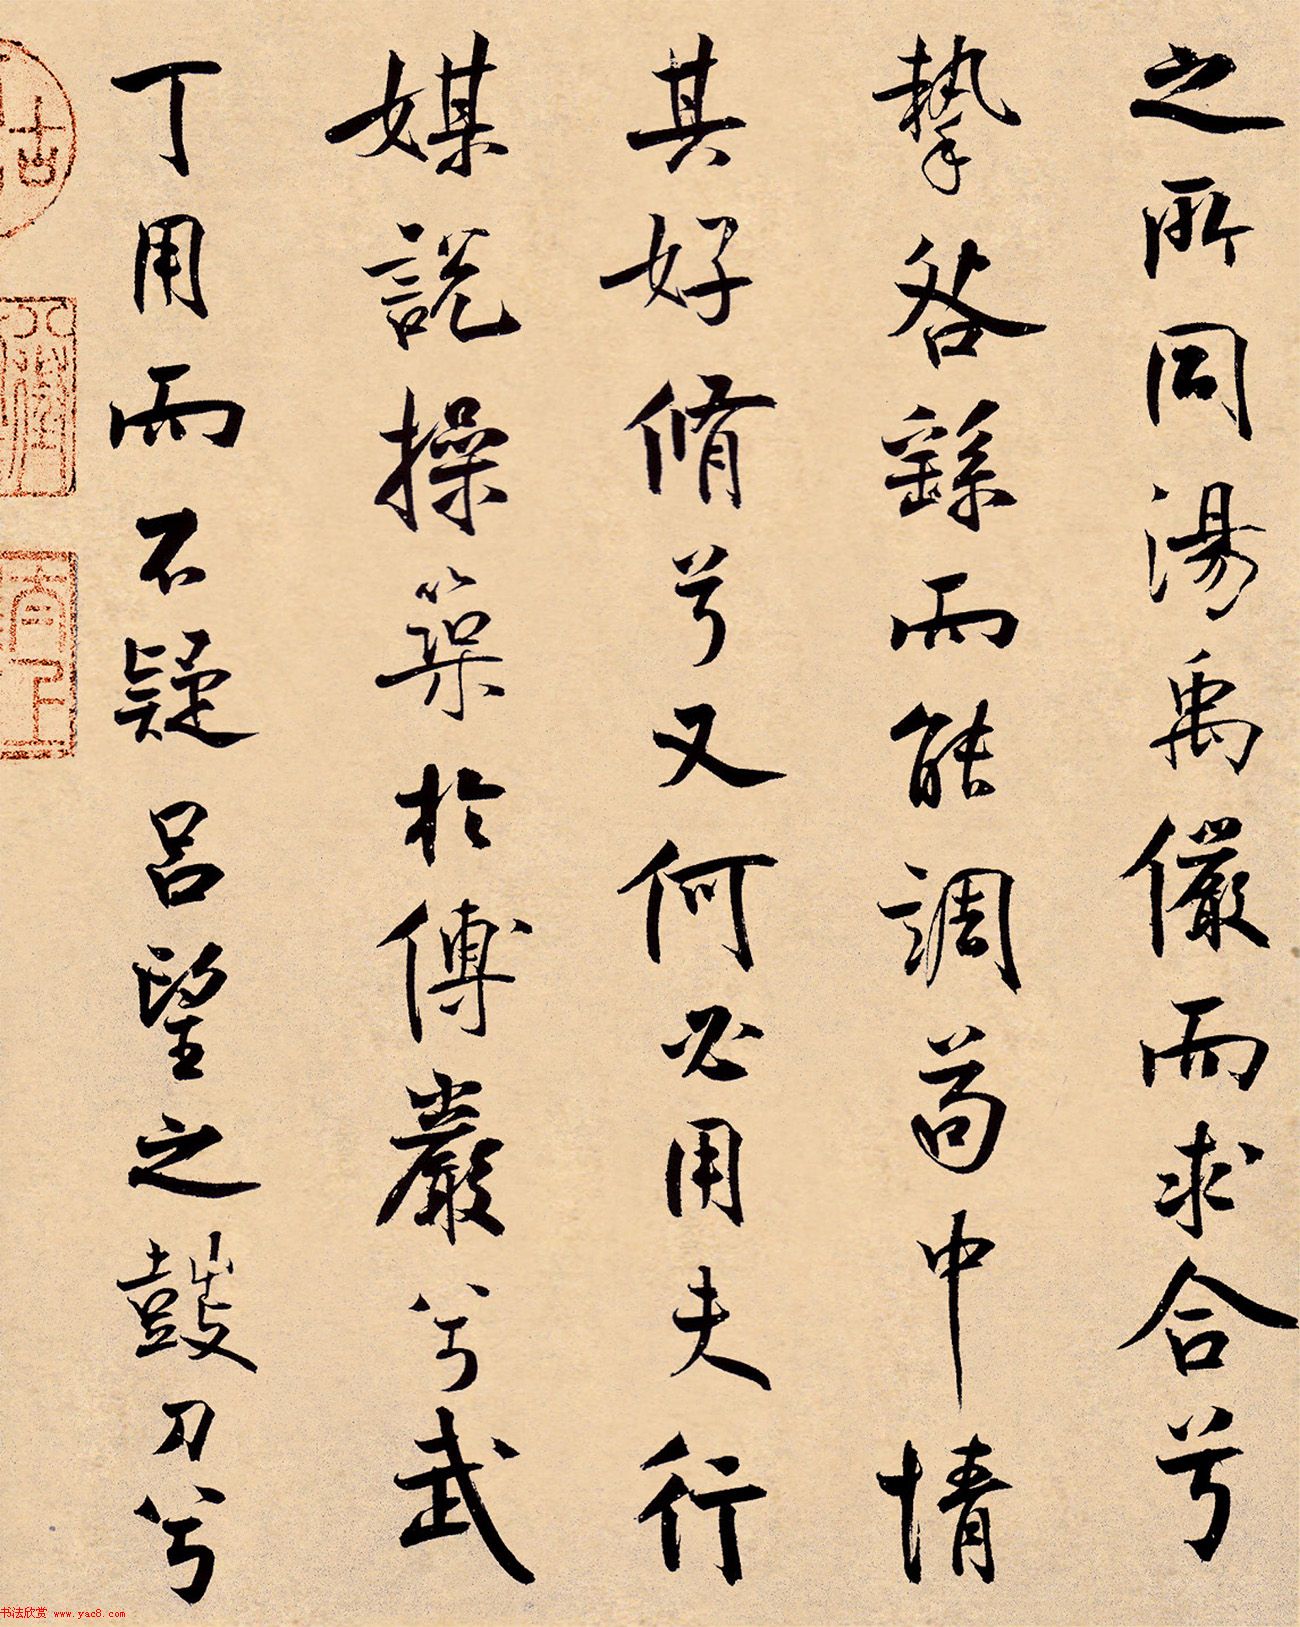 之所同湯禹儼而求合兮
摯咎繇而能調苟中情
其好脩兮又何必用夫行
媒説操築於傅巖兮武
丁用而不疑呂望之鼓刀兮
书法欣赏 www.yac8.com